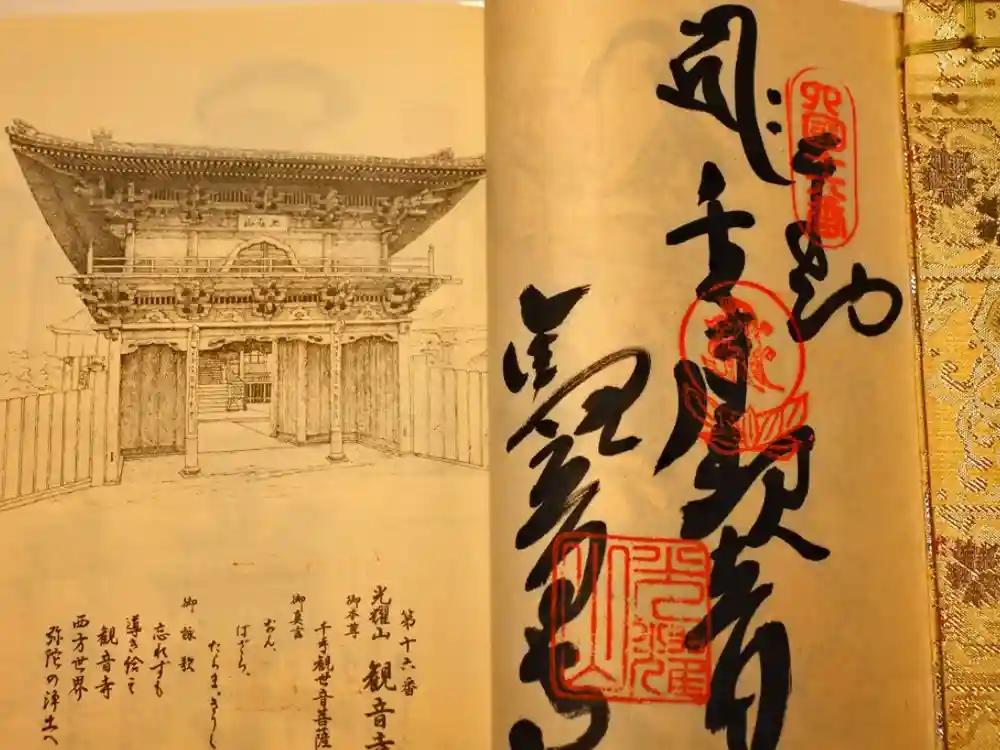 四國十六番
千手観音
観音寺
光耀山
第十六番
光耀山 観音寺
御本尊
千手観世音菩薩
御真言
おん、
ばざら、
たらま、きりく
御詠歌
忘れずも
導き給え
観音寺
西方世界
弥陀の浄土へ